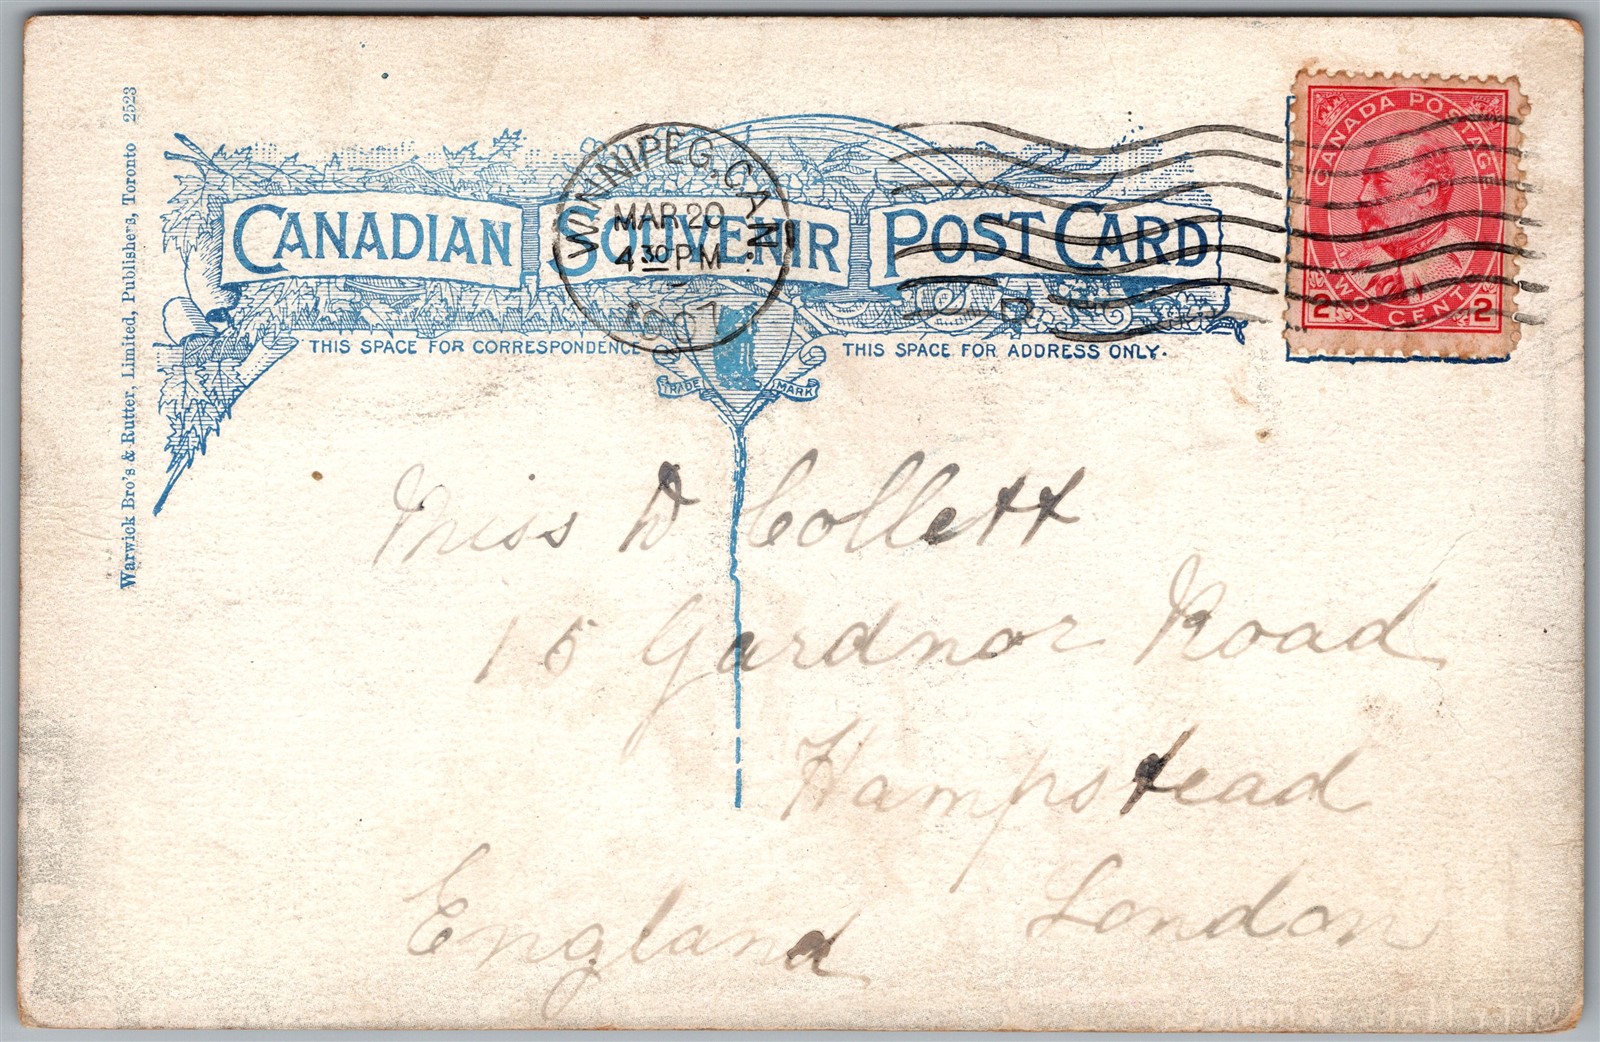 Warwick Bro's & Rutter, Limited, Publishers, Toronto 2523
CANADIAN SOUVENIR POST CARD
WINNIPEG, CAN.
MAR 20
4 30 PM
1907
CANADA POSTAGE
2 TWO CENTS 2
THIS SPACE FOR CORRESPONDENCE
THIS SPACE FOR ADDRESS ONLY.
TRADE MARK
Miss D Collett
15 Gardnor Road
Hampstead
London
England